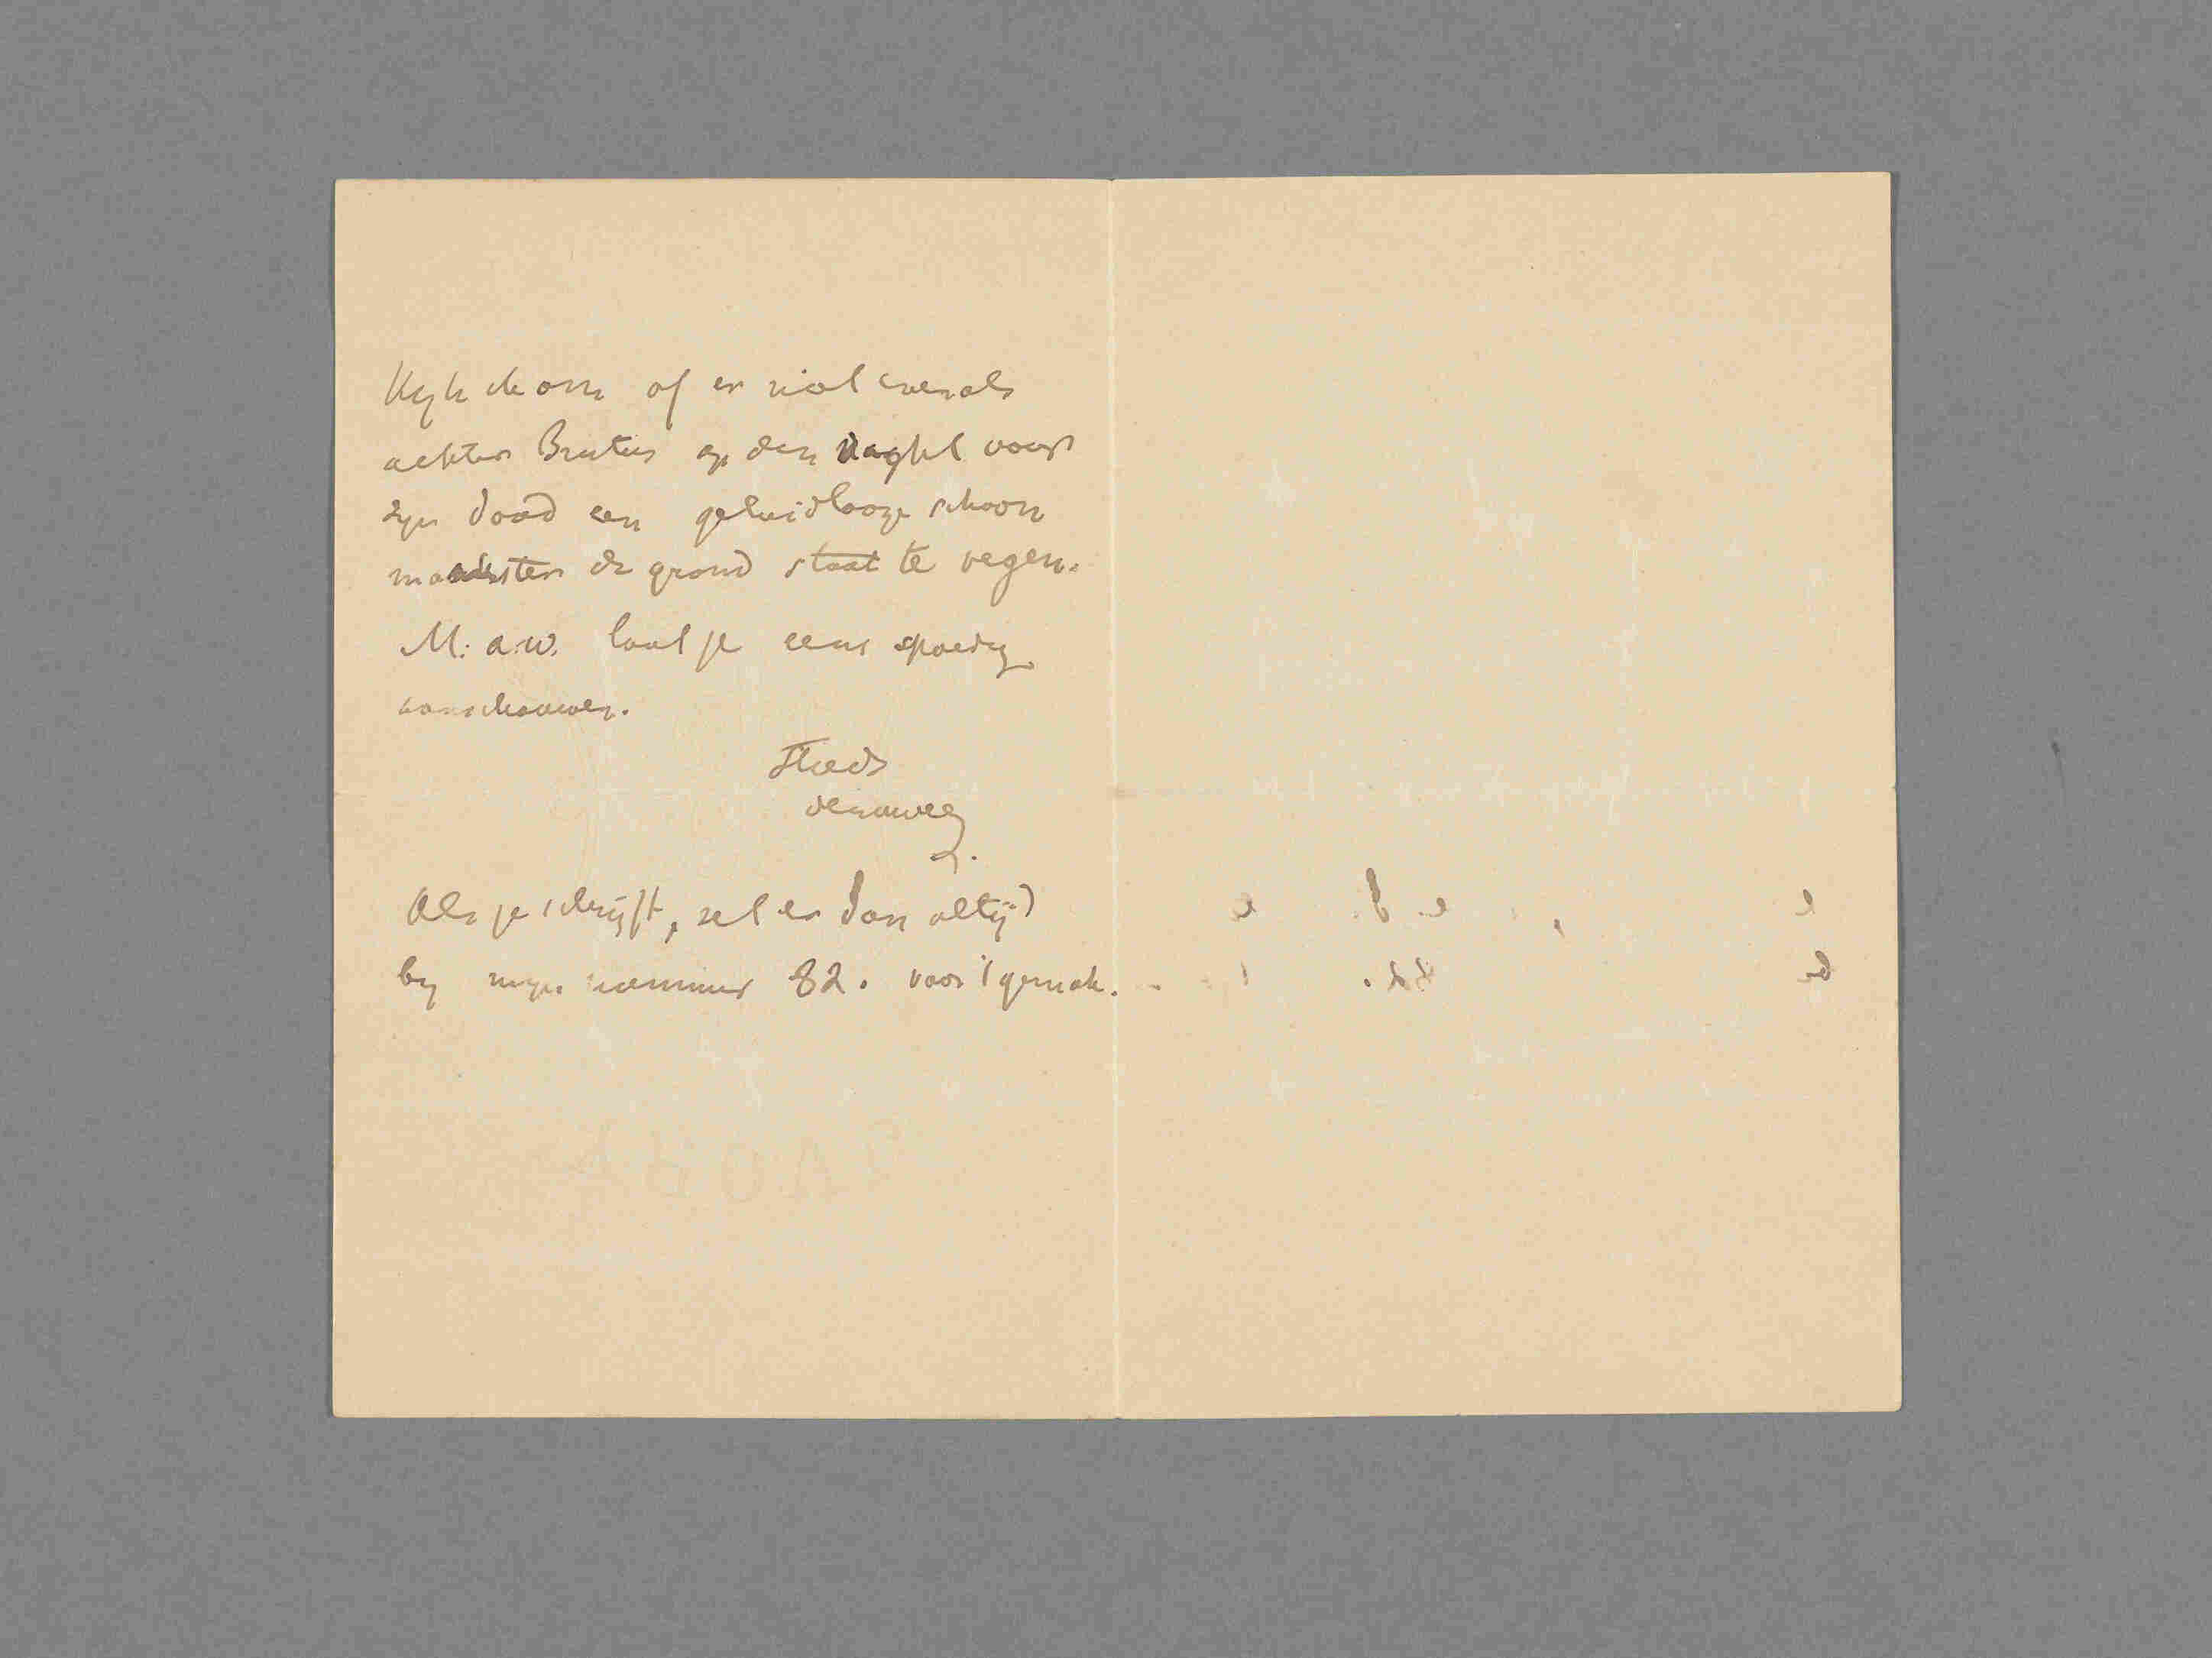 Kyk de om of er niet evenals
achter Brutus op den nacht voor
zyn dood een geluidlooze schoon
maakster de grond staat te vegen.
M. a. w. laat je eens spoedig
aanschouwen.
Steeds
vanwege
Als je schrijft, zet er dan altijd
by myn nummer 82. voor 't gemak.